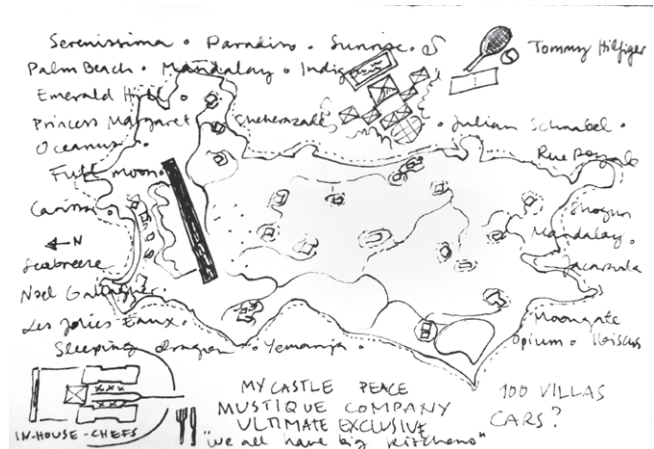 Serenissima • Paradiso • Sunrise •
Tommy Hilfiger
Palm Beach • Mandalay • Indigo
Emerald Hill •
Princess Margaret Sheherazade
• Julian Schnabel •
Oceanus •
Rue Royale
Full moon •
Carissa •
Shogun
← N
Mandalay •
Seabreeze
Jacaranda
Noel Gallagher •
Les Jolies Eaux •
Moongate
Sleeping dragon • Yemanja •
Opium • Ibiscus
MY CASTLE PEACE
100 VILLAS
MUSTIQUE COMPANY
CARS?
ULTIMATE EXCLUSIVE
IN-HOUSE-CHEFS
"we all have big kitchens"